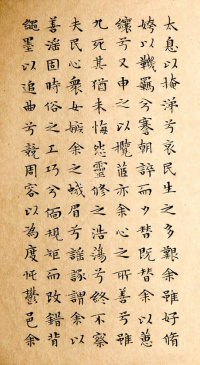 太息以掩涕兮哀民生之多艱余雖好脩
姱以鞿羈兮謇朝誶而夕替既替余以蕙
纕兮又申之以攬茝亦余心之所善兮雖
九死其猶未悔怨靈脩之浩蕩兮終不察
夫民心衆女嫉余之蛾眉兮謠諑謂余以
善淫固時俗之工巧兮偭規矩而改錯背
繩墨以追曲兮競周容以為度忳鬱邑余